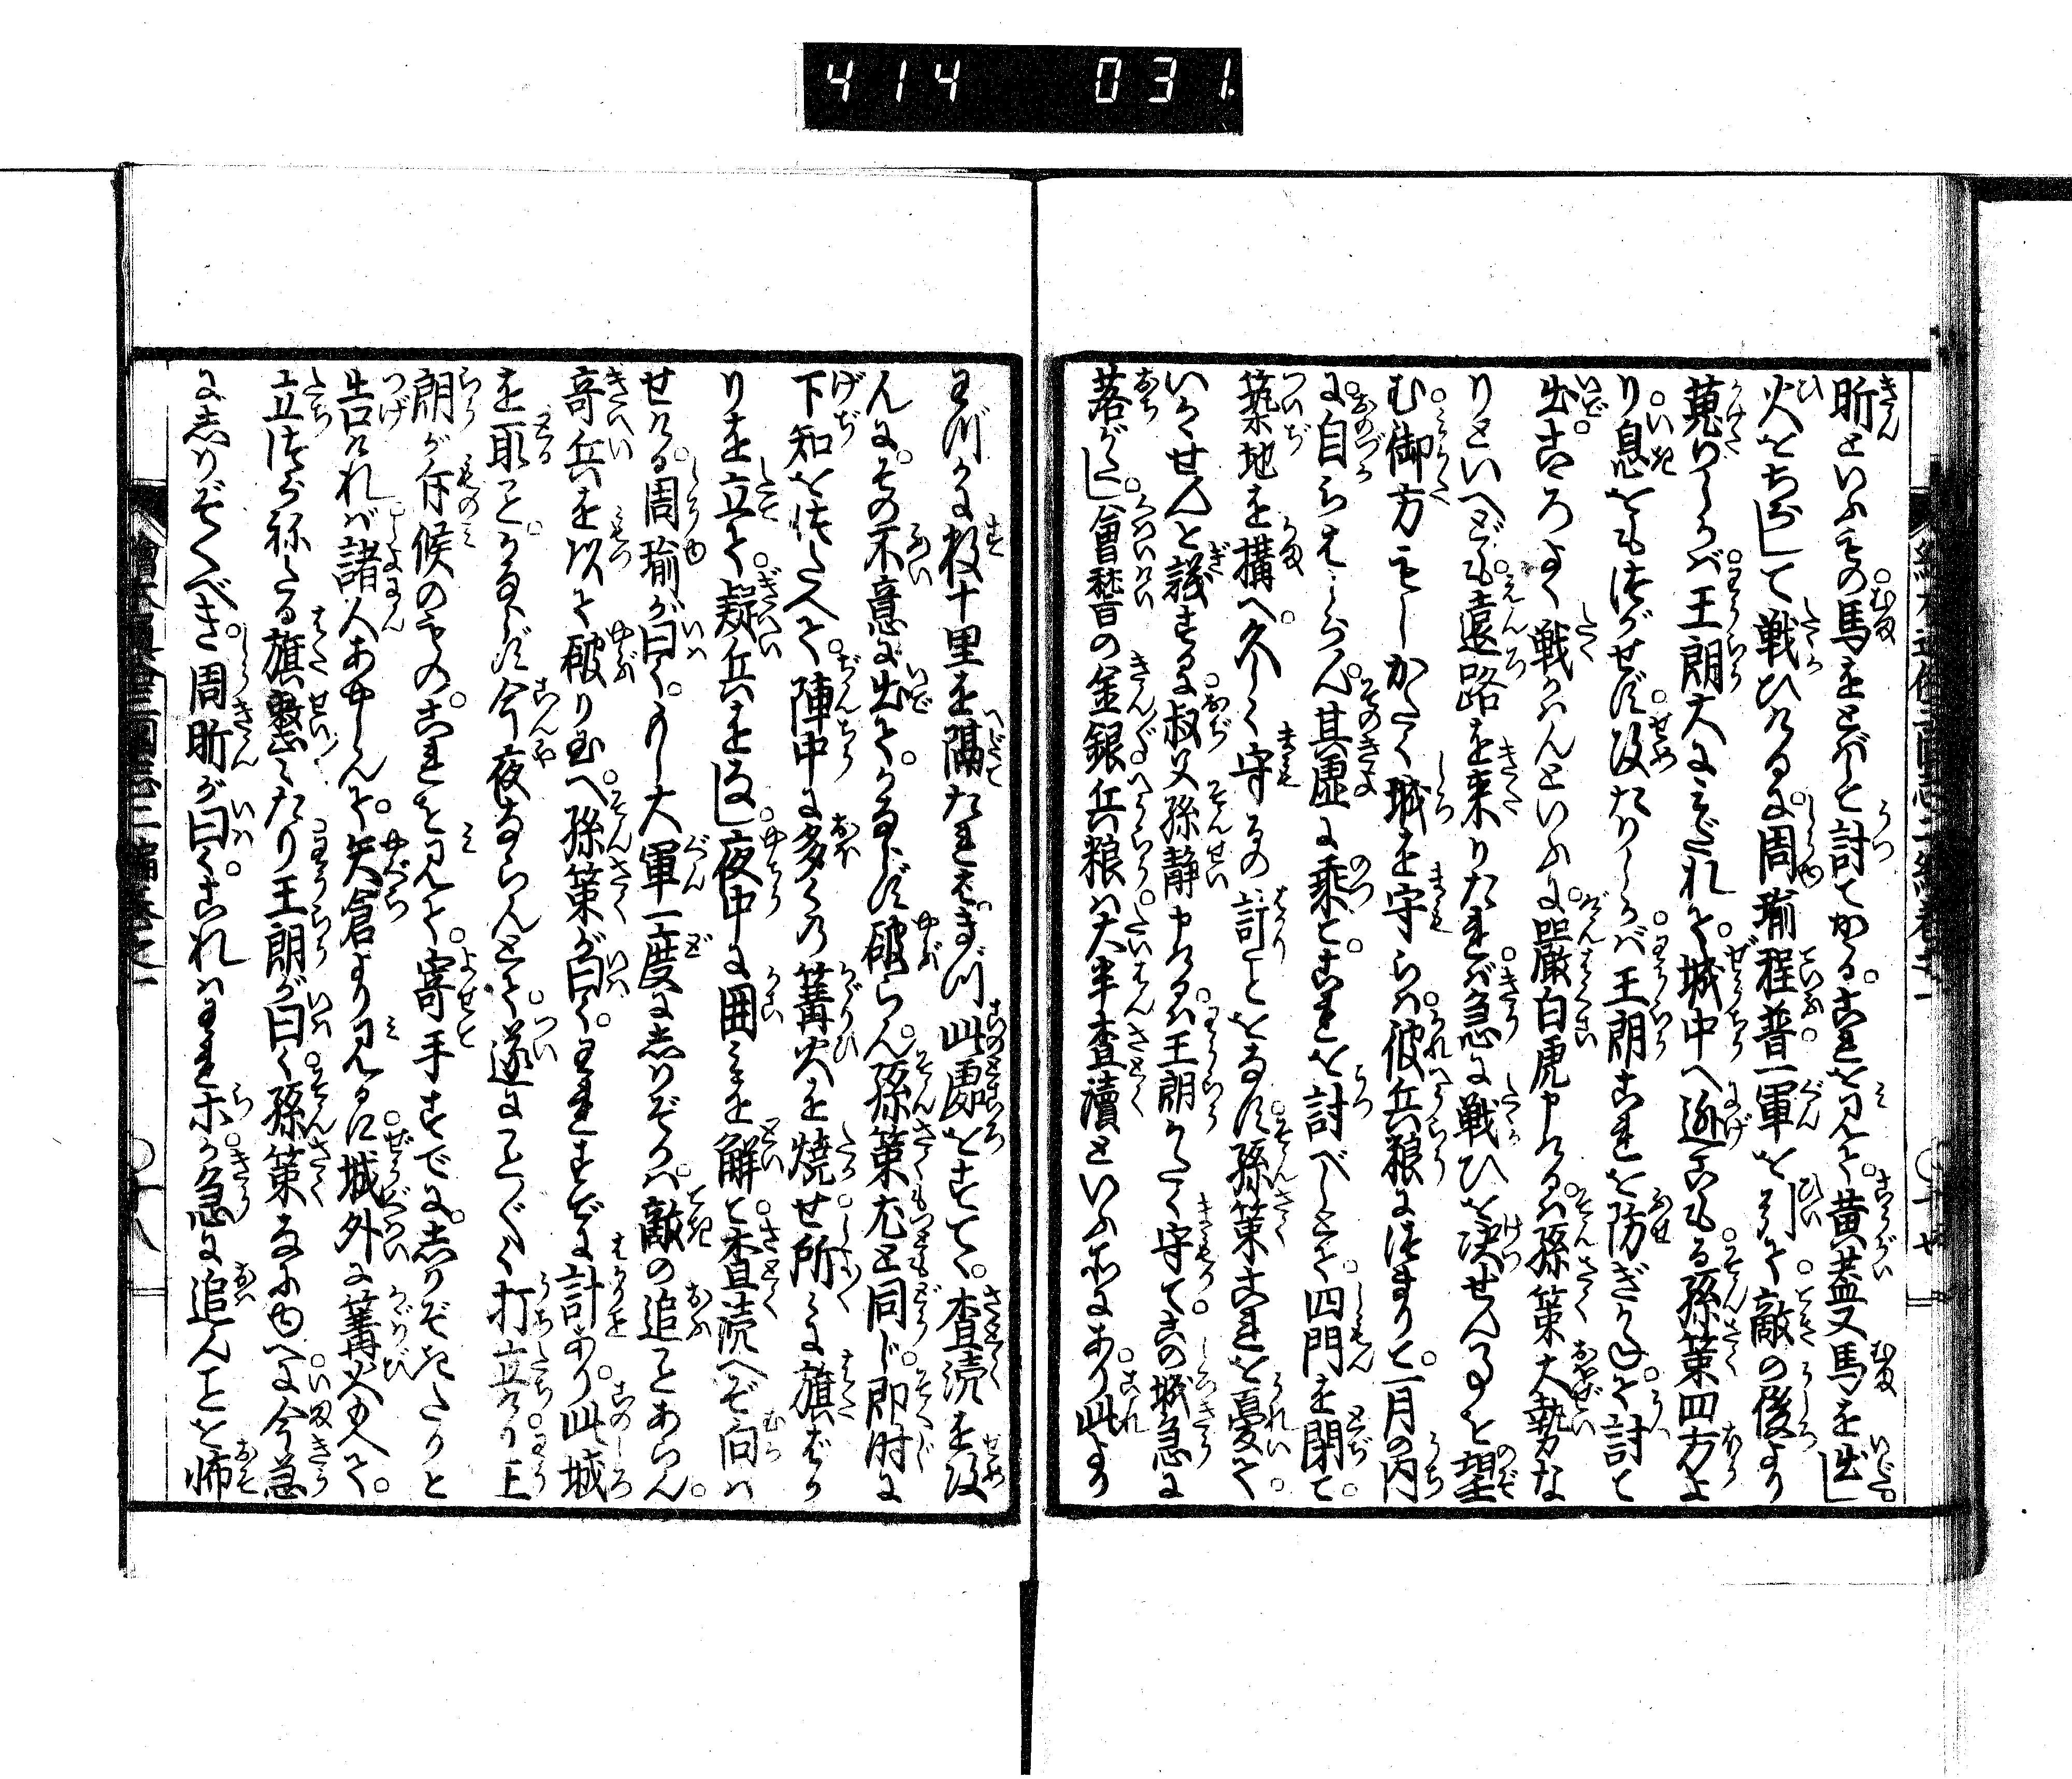 414 031.
昕といふもの馬をとばして討てかゝるこれを見て黄蓋又馬を出し
火をちらして戦ひけるに周瑜程普一軍を引て敵の後より
蒐りしかば王朗大にみだれて城中へ逃こもる孫策四方よ
り息をもつがせず攻たりしかば王朗これを防ぎかね討て
出こゝろよく戦はんといふに嚴白虎申けるは孫策大勢な
りといへども遠路を来りたれば急に戦ひを決せんことを望
む御方もしかたく城を守らは彼兵粮につまりて一月の内
に自らはしらん其虚に乗てこれを討べしとて四門を閉て
築地を構へ久しく守るの計ことをなす孫策これを憂て
いかゞせんと議するに叔父孫静申けるは王朗かたく守てこの城急に
落がたし會稽の金銀兵粮は大半査瀆といふ所にあり此より
わづかに数十里を隔たれはまづ此處をすてゝ査瀆を攻
んにその不意に出てかならず破らん孫策尤と同じ即时に
下知をつたへて陣中に多くの篝火を焼せ所〳〵に旗ばか
りを立て疑兵をなし夜中に囲みを解て査瀆へぞ向は
せける周瑜が曰くもし大軍一度にしりぞかば敵の追ことあらん
奇兵を以て破り玉へ孫策が曰くわれすでに計あり此城
を取ことかならず今夜ならんとて遂にこと〴〵く打立けり王
朗が斥候のものこれを見て寄手すでにしりぞきたりと
告ければ諸人あやしんて矢倉より見るに城外に篝火みへて
立つらねたる旗整〳〵たり王朗が曰く孫策なにゆへに今急
にしりぞくべき周昕が曰くこれはわれらが急に追んことを怖